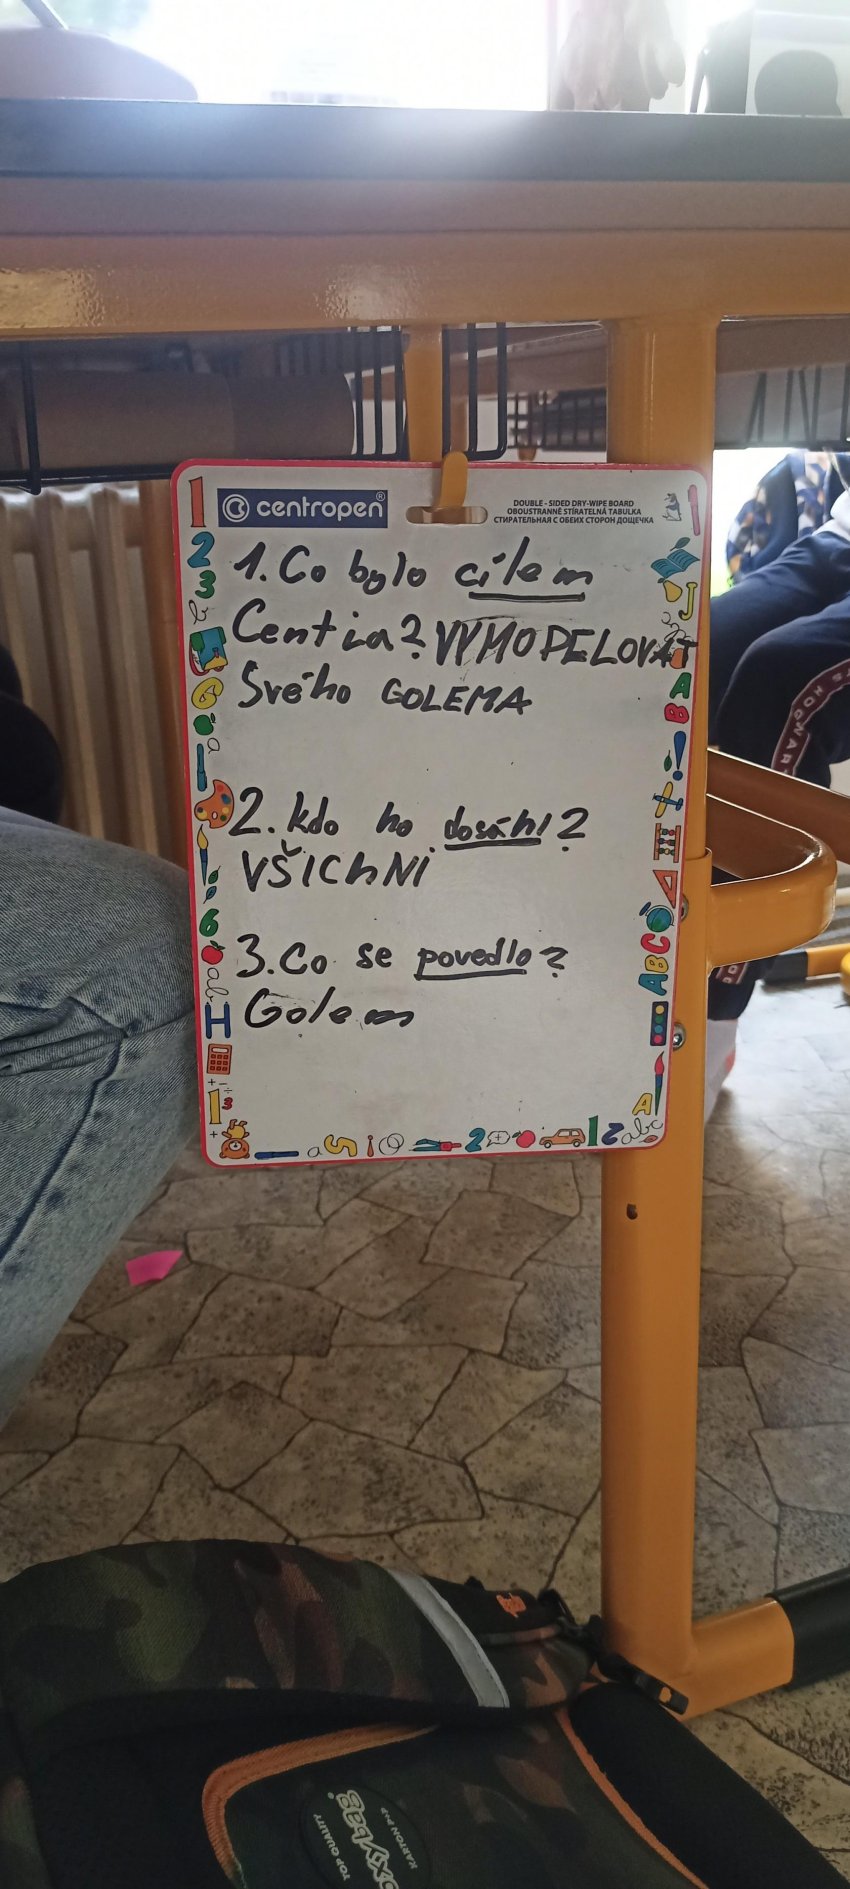 centropen®
DOUBLE - SIDED DRY-WIPE BOARD
OBOUSTRANNĚ STÍRATELNÁ TABULKA
СТИРАТЕЛЬНАЯ С ОБЕИХ СТОРОН ДОЩЕЧКА
1. Co bylo cílem
Centra? VYMODELOVAT
Svého GOLEMA
2. kdo ho dosáhl?
VŠICHNI
3. Co se povedlo?
Golem
TOP QUALITY
oxybag
KARTON P+P